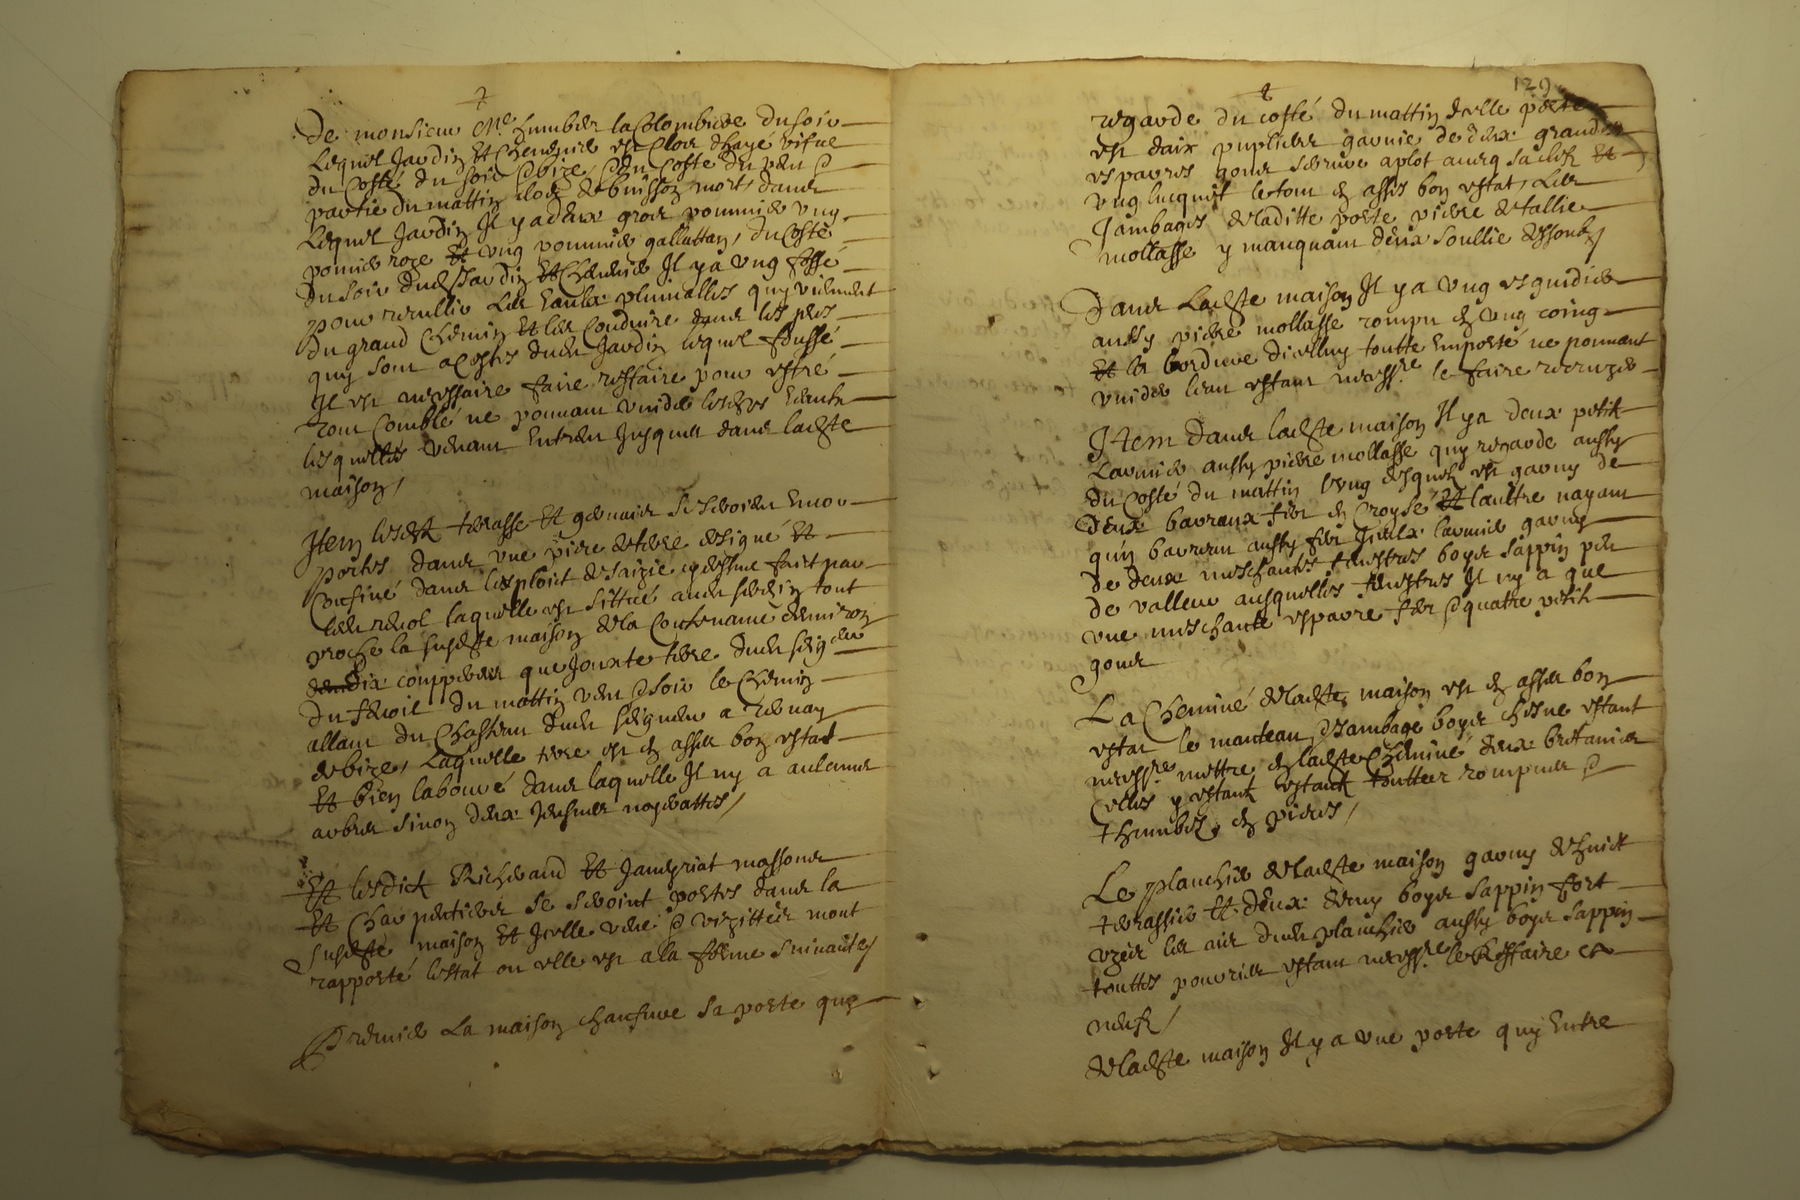 De monsieur Me humber la Colombiere du soir
Lequel Jardin Et Chenevier est Clos dhaye vifue
du Costé du soir & bize, & du Costé du vent &
partie du mattin clos de buisson mort, dans
Lequel Jardin Il y a deux gros pommier ung
pomier roze Et ung pommier gallattan, du Costé
du soir dudt Jardin Et Chenevier Il y a ung fossé
pour receullir Les Eaulx pluuialles quy viennent
du grand Chemin Et les Conduire dans les prés
quy sont a Costes dudt Jardin lequel foussé
Il est necessaire faire reffaire pour estre
tout Comblé ne pouuant vuider lesdites Eaulx
lesquelles viennent Entrer Jusques dans ladite
maison /
Item lesdit terrasse Et grenaier se seroient encor
portes dans une piece de terre designé Et
Confiné dans lexploit de saizie cydessus faict par
led revol laquelle est sittué audt serezin tout
proche la susdite maison de la Contenance denviron
dix couppees que Jouxte terre dudt seigr
du feroit du mattin vent & soir le Chemin
allant du Chasteau dudt seigneur a ternay
de bize, Laquelle terre est en asses bon estat
Et bien labouré dans laquelle Il ny a aulcuns
arbres sinon deux Jeusnes noyerattes /
Et lesdict Richerand Et Janeyriat massons
Et Charpentiers se seroint portes dans la
susdite maison Et Icelle veue & vizittée mont
rapporté lestat ou elle est a la forme suiuante /
Premier La maison haulte sa porte quy
129
regarde du costé du mattin & celle porte
est dair pupliers garnie de deux grandes
espares gons serrure aplot aueq sa clef Et
ung lucquet le tout en asses bon estat, Les
Jambages de laditte porte pierre de tallie
mollasse y manquant deux soullie dessoubz /
Dans Ladite maison Il y a ung esguidier
aussy pierre mollasse rompu en ung coing
Et la bordure dicelluy toutte Emporté ne pouuant
vuider leau estant necessre le faire recruzer
Item dans ladite maison Il y a deux petit
Larmier aussy pierre mollasse quy regarde aussy
du Costé du mattin Lung desquels est garny de
deux barreaux fer en Croysé Et laultre nayant
quun barreau aussy fer Iceulx larmier garny
de deux meschantes fenestres boys sappin peu
de valleur ausquelles fenestres Il ny a que
une meschante espare fer & quatre petit
gons
La Cheminé de ladite maison est en asses bon
estat le manteau & Jambage boys chesne estant
necessre mettre en ladite Cheminé deux bretanier
celles y estant estant touttes rompues &
thumbés en pieces /
Le planchier de ladite maison garny de huict
terrassier Et deux demy boys sappin fort
uzés les ais dudt planchier aussy boys sappin
touttes pourries estant necessre le Reffaire a
neufz /
De ladite maison Il y a une porte quy Entre